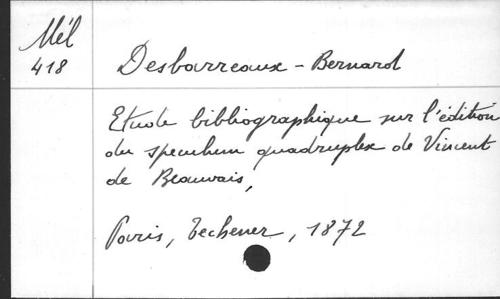 Mél
418
Desbarreaux - Bernard
Etude bibliographique sur l'édition
du speculum quadruplex de Vincent
de Beauvais,
Paris, Techener, 1872